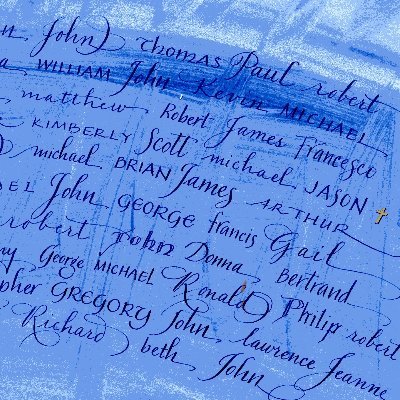 n, John Thomas Paul robert
a WILLIAM John Kevin MICHAEL
matthew Robert James Francesco
KIMBERLY Scott michael JASON
michael BRIAN James ARTHUR
EL John GEORGE francis Gail
robert John Donna Bertrand
ny George MICHAEL Ronald Philip robert
pher GREGORY John, laurence Jeanne
Richard beth John